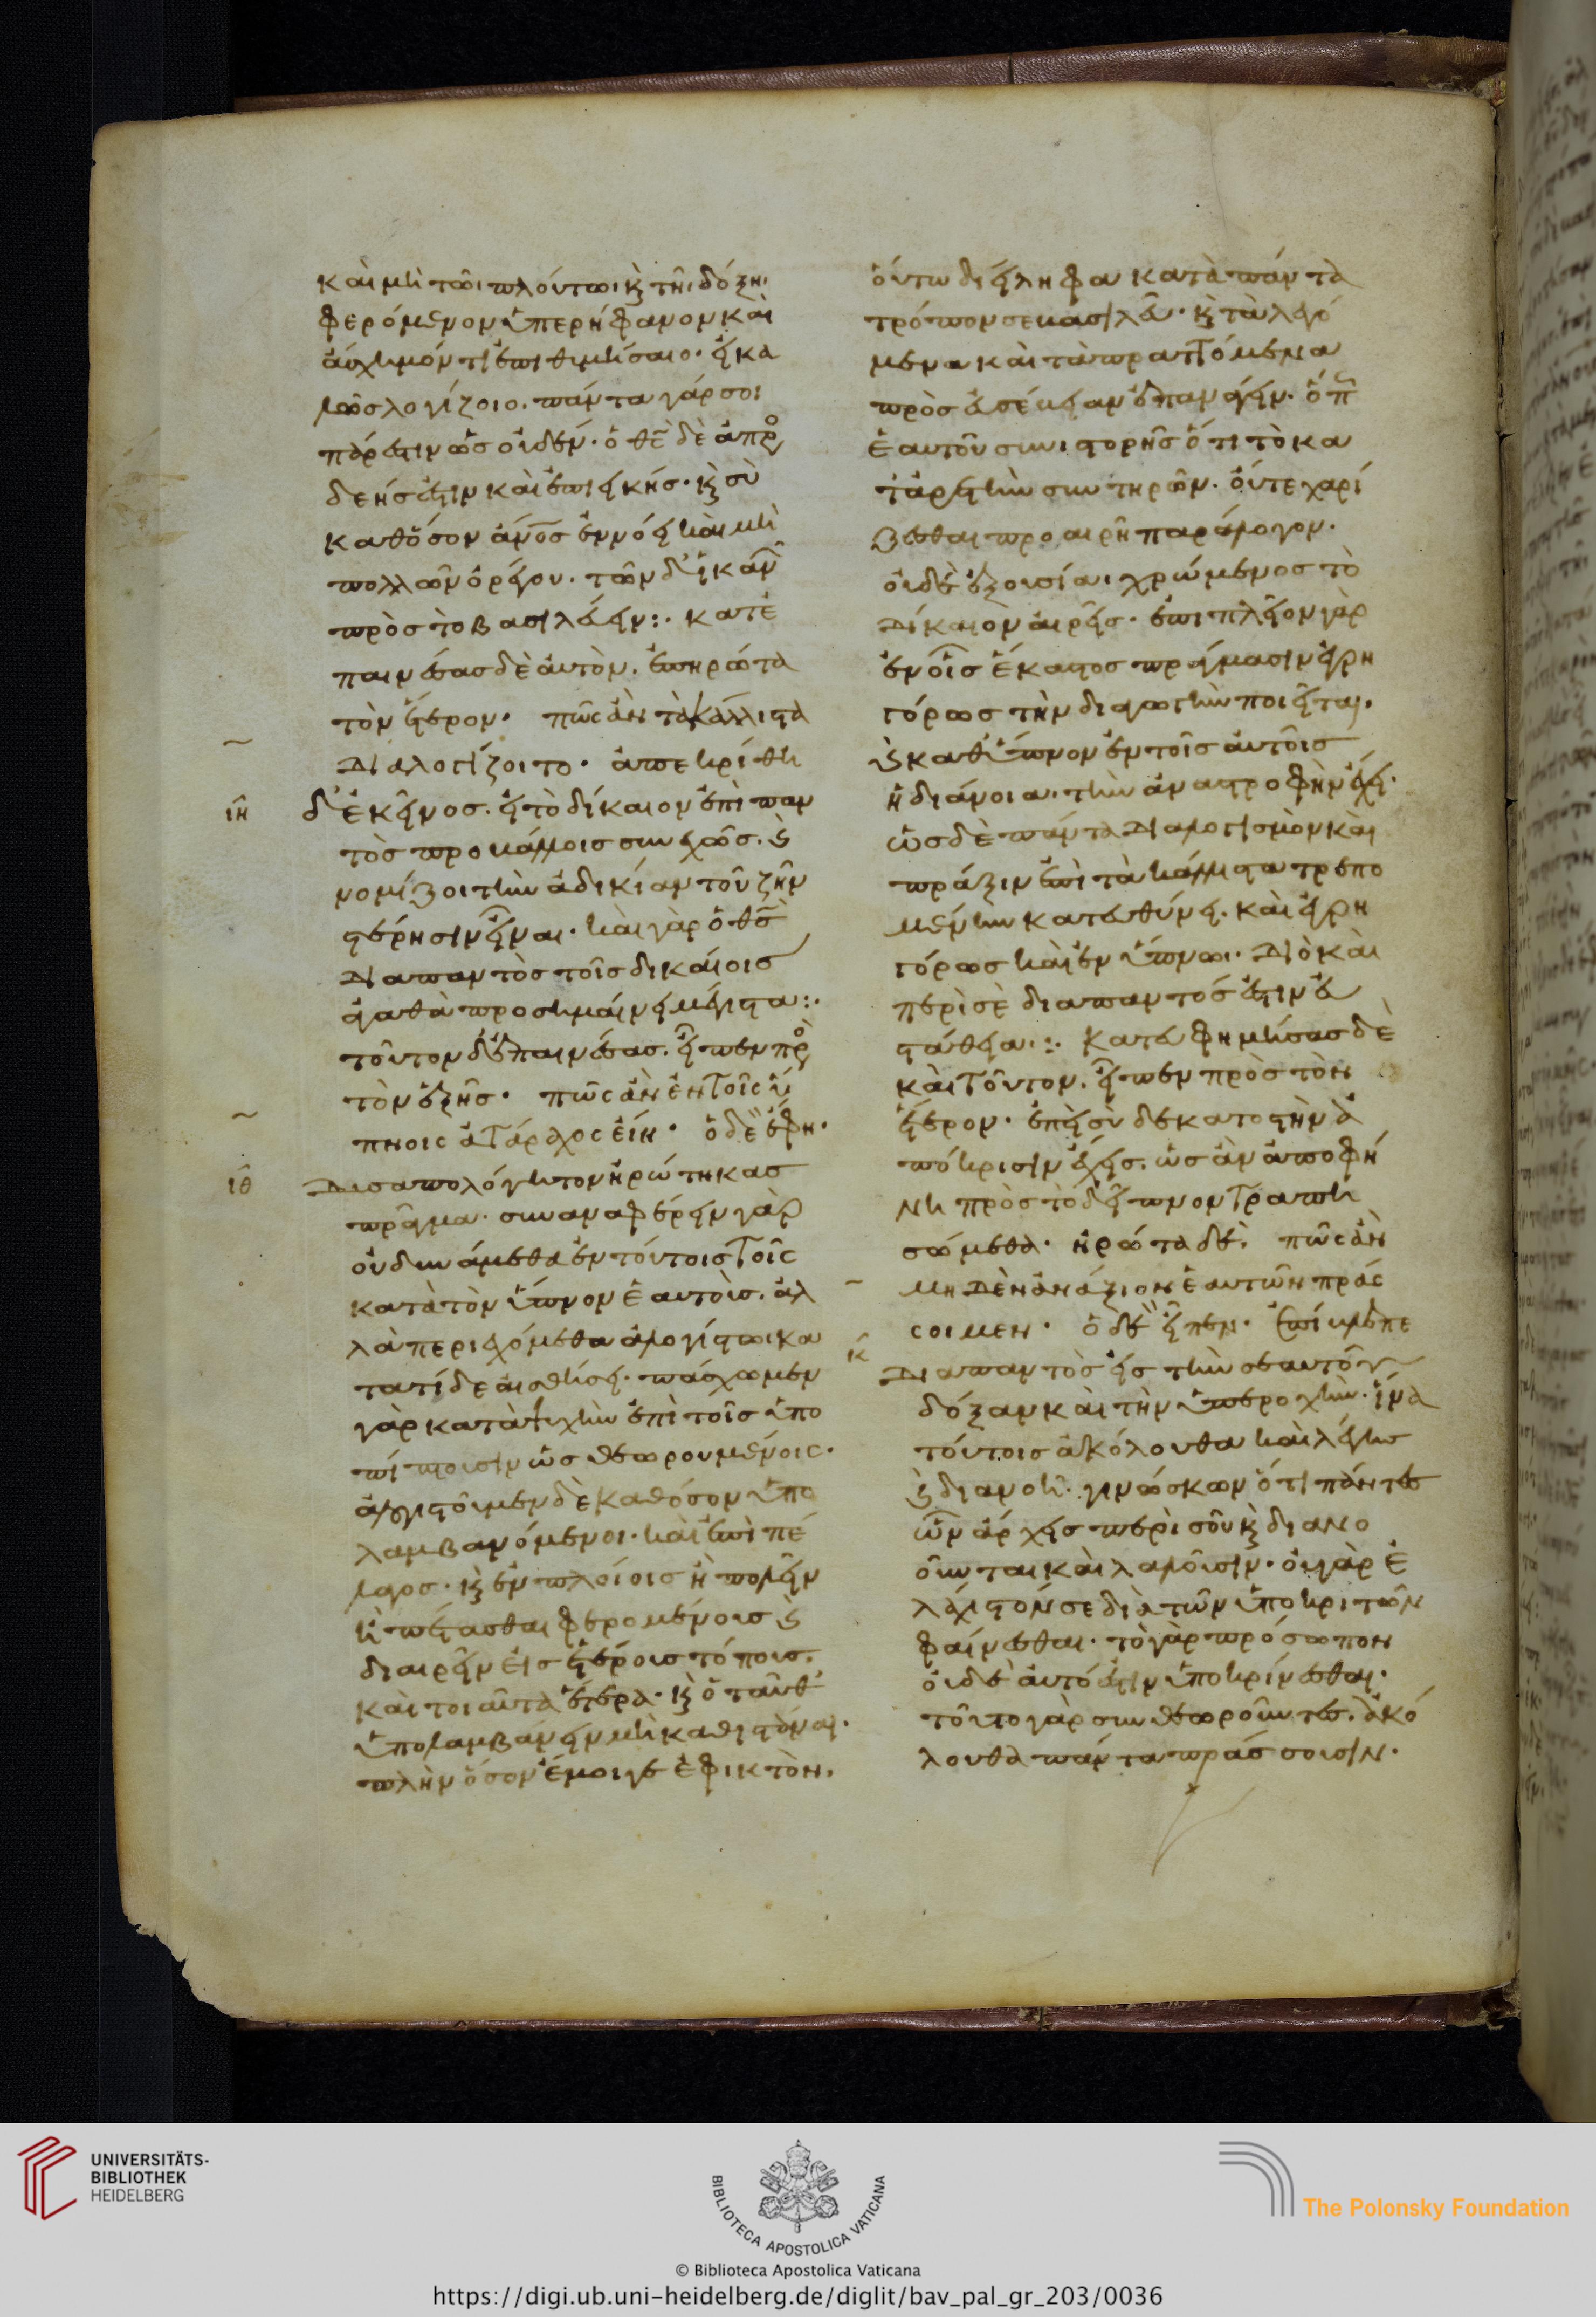 καὶ μὴ τῶι πλούτωι κ̀ τῆι δόξηι
φερόμενον ὑπερήφανον καὶ
ἄσχημόν τι ἐπιθυμήσαιο. εἰ κα
λῶς λογίζοιο. πάντα γάρ σοι
πάρεστιν ὡς οὐδέν. ὁ θ̅ς̅ δὲ ἀπρο
δεής ἐστιν καὶ ἐπιεικής. κ̀ σὺ
καθόσον ἄν̅ο̅ς̅ ἐννόει καὶ μὴ
πολλῶν ὀρέγου. τῶν δ' ἱκανῶ
πρὸς τὸ βασιλεύειν:. κατε
παινέσας δὲ αὐτὸν. ἐπηρώτα
τὸν ἕτερον. πῶς ἂν τὰ κάλλιστα
διαλογίζοιτο. ἀπεκρίθη
ιη δ' ἐκεῖνος. εἰ τὸ δίκαιον ἐπὶ παν
τὸς προβάλλοις συνεχῶς. κ̀
νομίζοι τὴν ἀδικίαν τοῦ ζῆν
στέρησιν εἶναι. καὶ γὰρ ὁ θ̅ς̅
διαπαντὸς τοῖς δικαίοις
ἀγαθὰ προσημαίνει μέγιστα:.
τοῦτον δ' ἐπαινέσας. εἶπεν πρὸ
τὸν ἑξῆς. πῶς ἂν ἐν τοῖς ὕ
πνοις ἀτάραχος εἴη. ὁ δὲ ἔφη.
ιθ δυσαπολόγητον ἠρώτηκας
πρᾶγμα. συναναφέρειν γὰρ
οὐ δυνάμεθα ἐν τούτοις τοῖς
κατὰ τὸν ὕπνον ἑαυτοὺς. ἀλ
λὰ περιεχόμεθα ἀλογίστωι κα
τὰ τί δε αἰσθήσει. πάσχωμεν
γὰρ κατὰ ψυχὴν ἐπὶ τοῖς ὑπο
πίπτουσιν ὡς θεωρουμένοις.
ἀλογιστοῦμεν δὲ καθόσον ὑπο
λαμβανόμενοι. καὶ ἐπὶ πέ
λαγος. κ̀ ἐν πλοίοις ἢ πολεῖν
ἢ πέτασθαι φερομένους κ̀
διαιρεῖν εἰς ἑτέρους τόπους.
καὶ τοιαῦτα ἕτερα. κ̀ ὁ ταῦθ'
ὑπολαμβάνειν μὴ καθιστάναι.
πλὴν ὅσον ἔμοιγε ἐφικτὸν.
οὕτω διείληφα κατὰ πάντα
τρόπον σε βασιλεῦ. κ̀ τὰ λεγό
μενα καὶ τὰ πραττόμενα
πρὸς εὐσέβειαν ἐπανάγειν. ὅπ
ἑαυτοῦ συνιστορῆς ὅτι τὸ κα
τ' ἀρετὴν συντηρῶν. οὔτε χαρί
ζεσθαι προαιρῆ παράλογον.
οὐδὲ ἐξουσίαι χρώμενος τὸ
δίκαιον αἱρεῖς. ἐπιπλεῖον γὰρ
ἐν οἷς ἕκαστος πράγμασιν ἐγρη
γόρως τὴν διαγωγὴν ποιεῖται.
κ̀ καθ' ὕπνον ἐν τοῖς αὐτοῖς
ἡ διάνοια. τὴν ἀναστροφὴν ἔχει.
ὡς δὲ πάντα διαλογισμὸν καὶ
πράξιν ἐπὶ τὰ κάλλιστα τρεπο
μένην κατευθύνει. καὶ ἐγρη
γόρως καὶ ἐν ὕπνωι. διὸ καὶ
περὶ σὲ διαπαντός ἐστιν εὐ
στάθεια:. κατευφημήσας δὲ
καὶ τοῦτον. εἶπεν πρὸς τὸν
ἕτερον. ἐπεὶ σὺ δέκατος τὴν ἀ
πόκρισιν ἔχεις. ὡς ἂν ἀποφή
νη πρὸς τὸ δεῖπνον τραπη
σώμεθα. ἠρώτα δέ. πῶς ἂν
μηδὲν ἀνάξιον ἑαυτῶν πράς
σοιμεν. ὁ δὲ εἶπεν. ἐπίβλεπε
κ διαπαντὸς εἰς τὴν σεαυτοῦ
δόξαν καὶ τὴν ὑπεροχὴν. ἵνα
τούτοις ἀκόλουθα καὶ λέγης
κ̀ διανοῆ. γινώσκων ὅτι πάντες
ὧν ἄρχεις περὶ σοῦ κ̀ διανο
οῦνται καὶ λαλοῦσιν. οὐ γὰρ ἐ
λάχιστόν σε διὰ τῶν ὑποκριτῶν
φαίνεσθαι. τὸ γὰρ πρόσωπον
οὐδὲ αὐτό ἐστιν ὑποκρίνεσθαι.
τοῦτο γὰρ συνθεωροῦντες. ἀκό
λουθα πάντα πράσσουσιν.
UNIVERSITÄTS-
BIBLIOTHEK
HEIDELBERG
BIBLIOTECA APOSTOLICA VATICANA
The Polonsky Foundation
© Biblioteca Apostolica Vaticana
https://digi.ub.uni-heidelberg.de/diglit/bav_pal_gr_203/0036